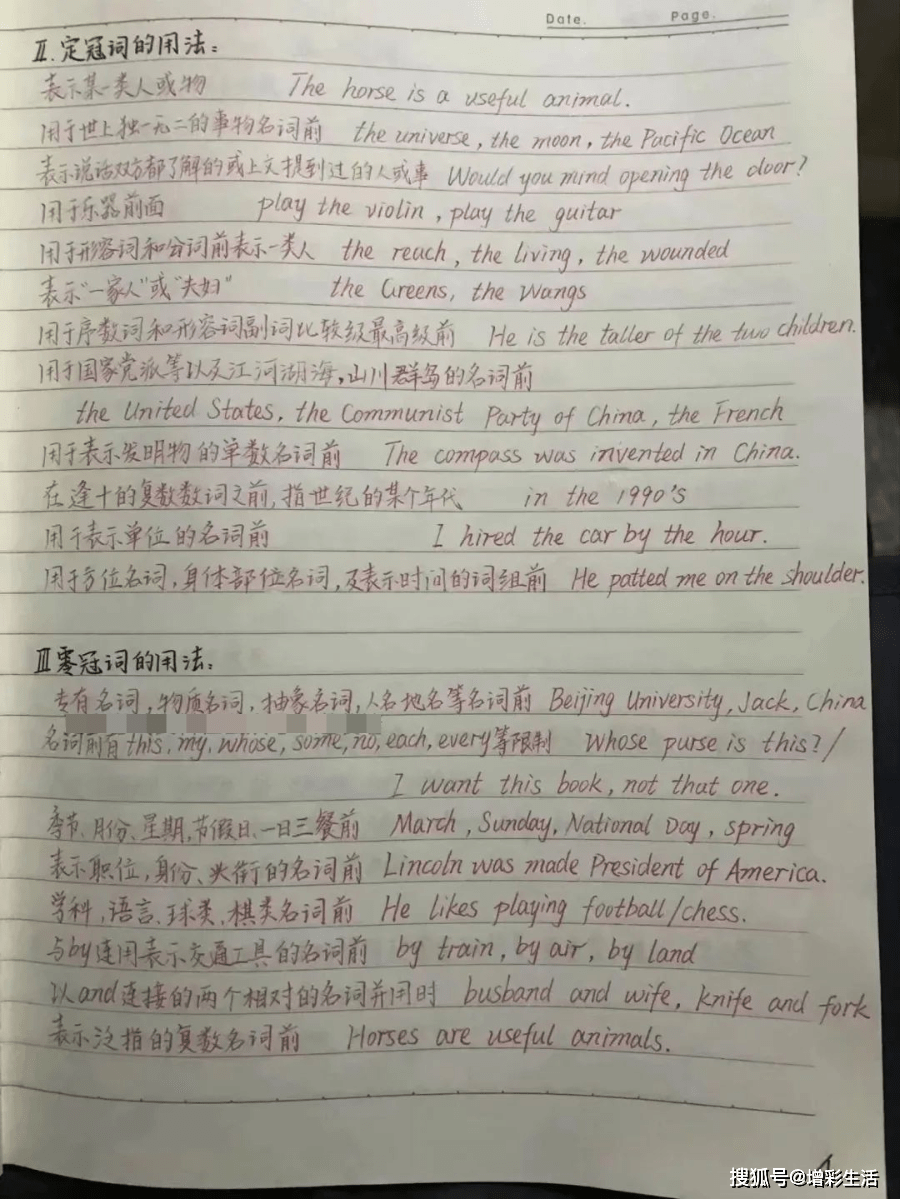 Date. Page.
Ⅱ.定冠词的用法:
表示某一类人或物 The horse is a useful animal.
用于世上独一无二的事物名词前 the universe, the moon, the Pacific Ocean
表示说话双方都了解的或上文提到过的人或事 Would you mind opening the door?
用于乐器前面 play the violin, play the guitar
用于形容词和分词前表示一类人 the reach, the living, the wounded
表示“一家人”或“夫妇” the Greens, the Wangs
用于序数词和形容词副词比较级最高级前 He is the taller of the two children.
用于国家党派等以及江河湖海,山川群岛的名词前
the United States, the Communist Party of China, the French
用于表示发明物的单数名词前 The compass was invented in China.
在逢十的复数数词之前,指世纪的某个年代 in the 1990's
用于表示单位的名词前 I hired the car by the hour.
用于方位名词,身体部位名词,及表示时间的词组前 He patted me on the shoulder.
Ⅲ零冠词的用法:
专有名词,物质名词,抽象名词,人名地名等名词前 Beijing University, Jack, China
名词前有this, my, whose, some, no, each, every等限制 Whose purse is this?/
I want this book, not that one.
季节、月份、星期,节假日、一日三餐前 March, Sunday, National Day, spring
表示职位,身份、头衔的名词前 Lincoln was made President of America.
学科,语言、球类、棋类名词前 He likes playing football/chess.
与by连用表示交通工具的名词前 by train, by air, by land
以and连接的两个相对的名词并用时 busband and wife, knife and fork
表示泛指的复数名词前 Horses are useful animals.
搜狐号@增彩生活